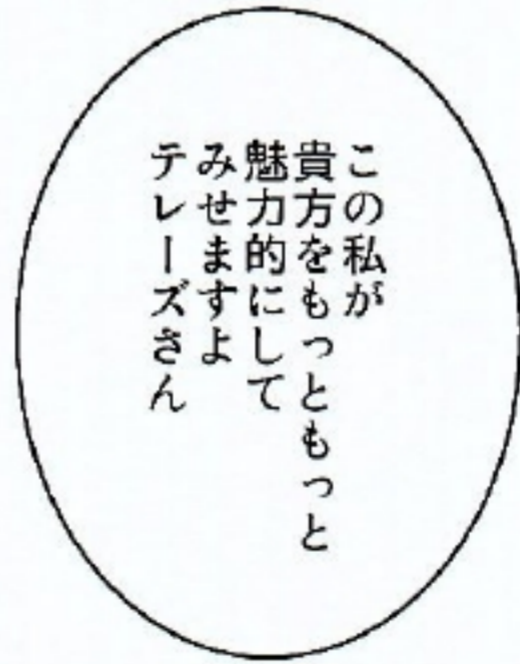 この私が
貴方をもっともっと
魅力的にして
みせますよ
テレーズさん